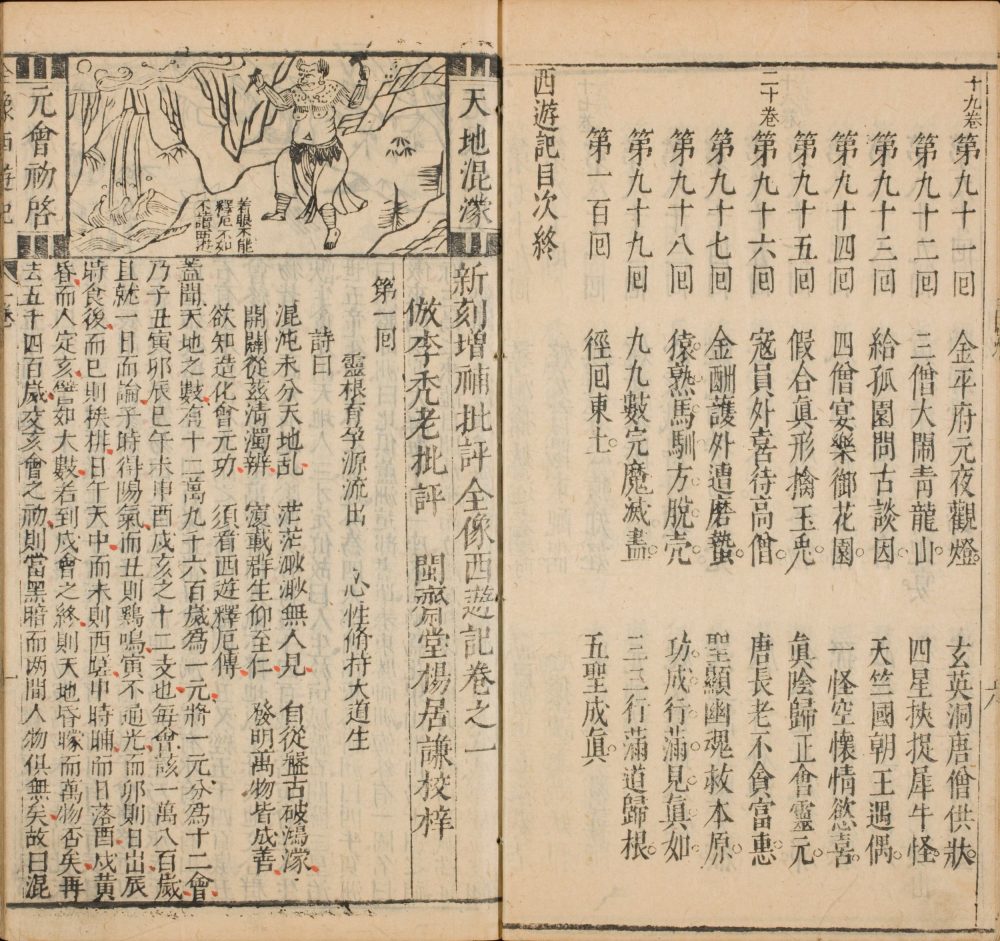 十九卷
第九十一回　金平府元夜觀燈　玄英洞唐僧供狀
第九十二回　三僧大鬧青龍山　四星挾捉犀牛怪
第九十三回　給孤園問古談因　天竺國朝王遇偶
第九十四回　四僧宴樂御花園　一怪空懷情慾喜
第九十五回　假合眞形擒玉兎　眞陰歸正會靈元
二十卷
第九十六回　寇員外喜待高僧　唐長老不貪富惠
第九十七回　金酬護外遭磨蟄　聖顯幽魂救本原
第九十八回　猿熟馬馴方脫壳　功成行滿見眞如
第九十九回　九九數完魔滅盡　三三行滿道歸根
第一百回　徑回東土　五聖成眞
西遊記目次終
六
天地混濛
元會初啓
若要不能
釋厄不如
不讀西遊
新刻增補批評全像西遊記卷之一
倣李禿老批評　閩齋堂楊居謙校梓
第一回
靈根育孕源流出　心性脩持大道生
詩曰
混沌未分天地乱　茫茫渺渺無人見　自從盤古破鴻濛
開闢從茲清濁辨　覆載群生仰至仁　發明萬物皆成善
欲知造化會元功　須看西遊釋厄傳
蓋聞天地之數有十二萬九千六百歲爲一元將一元分爲十二會
乃子丑寅卯辰巳午未申酉戌亥之十二支也每會該一萬八百歲
且就一日而論子時得陽氣而丑則鷄鳴寅不通光而卯則日出辰
時食後而巳則挨排日午天中而未則西蹉申時晡而日落酉戌黄
昏而人定亥譬如大數若到戌會之終則天地昏曚而萬物否矣再
去五千四百歲交亥會之初則當黑暗而两間人物俱無矣故曰混
全像西遊記
一卷
一